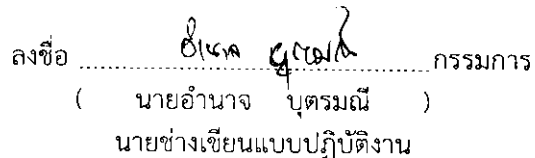 ลงชื่อ อำนาจ บุตรมณี กรรมการ
( นายอำนาจ บุตรมณี )
นายช่างเขียนแบบปฏิบัติงาน